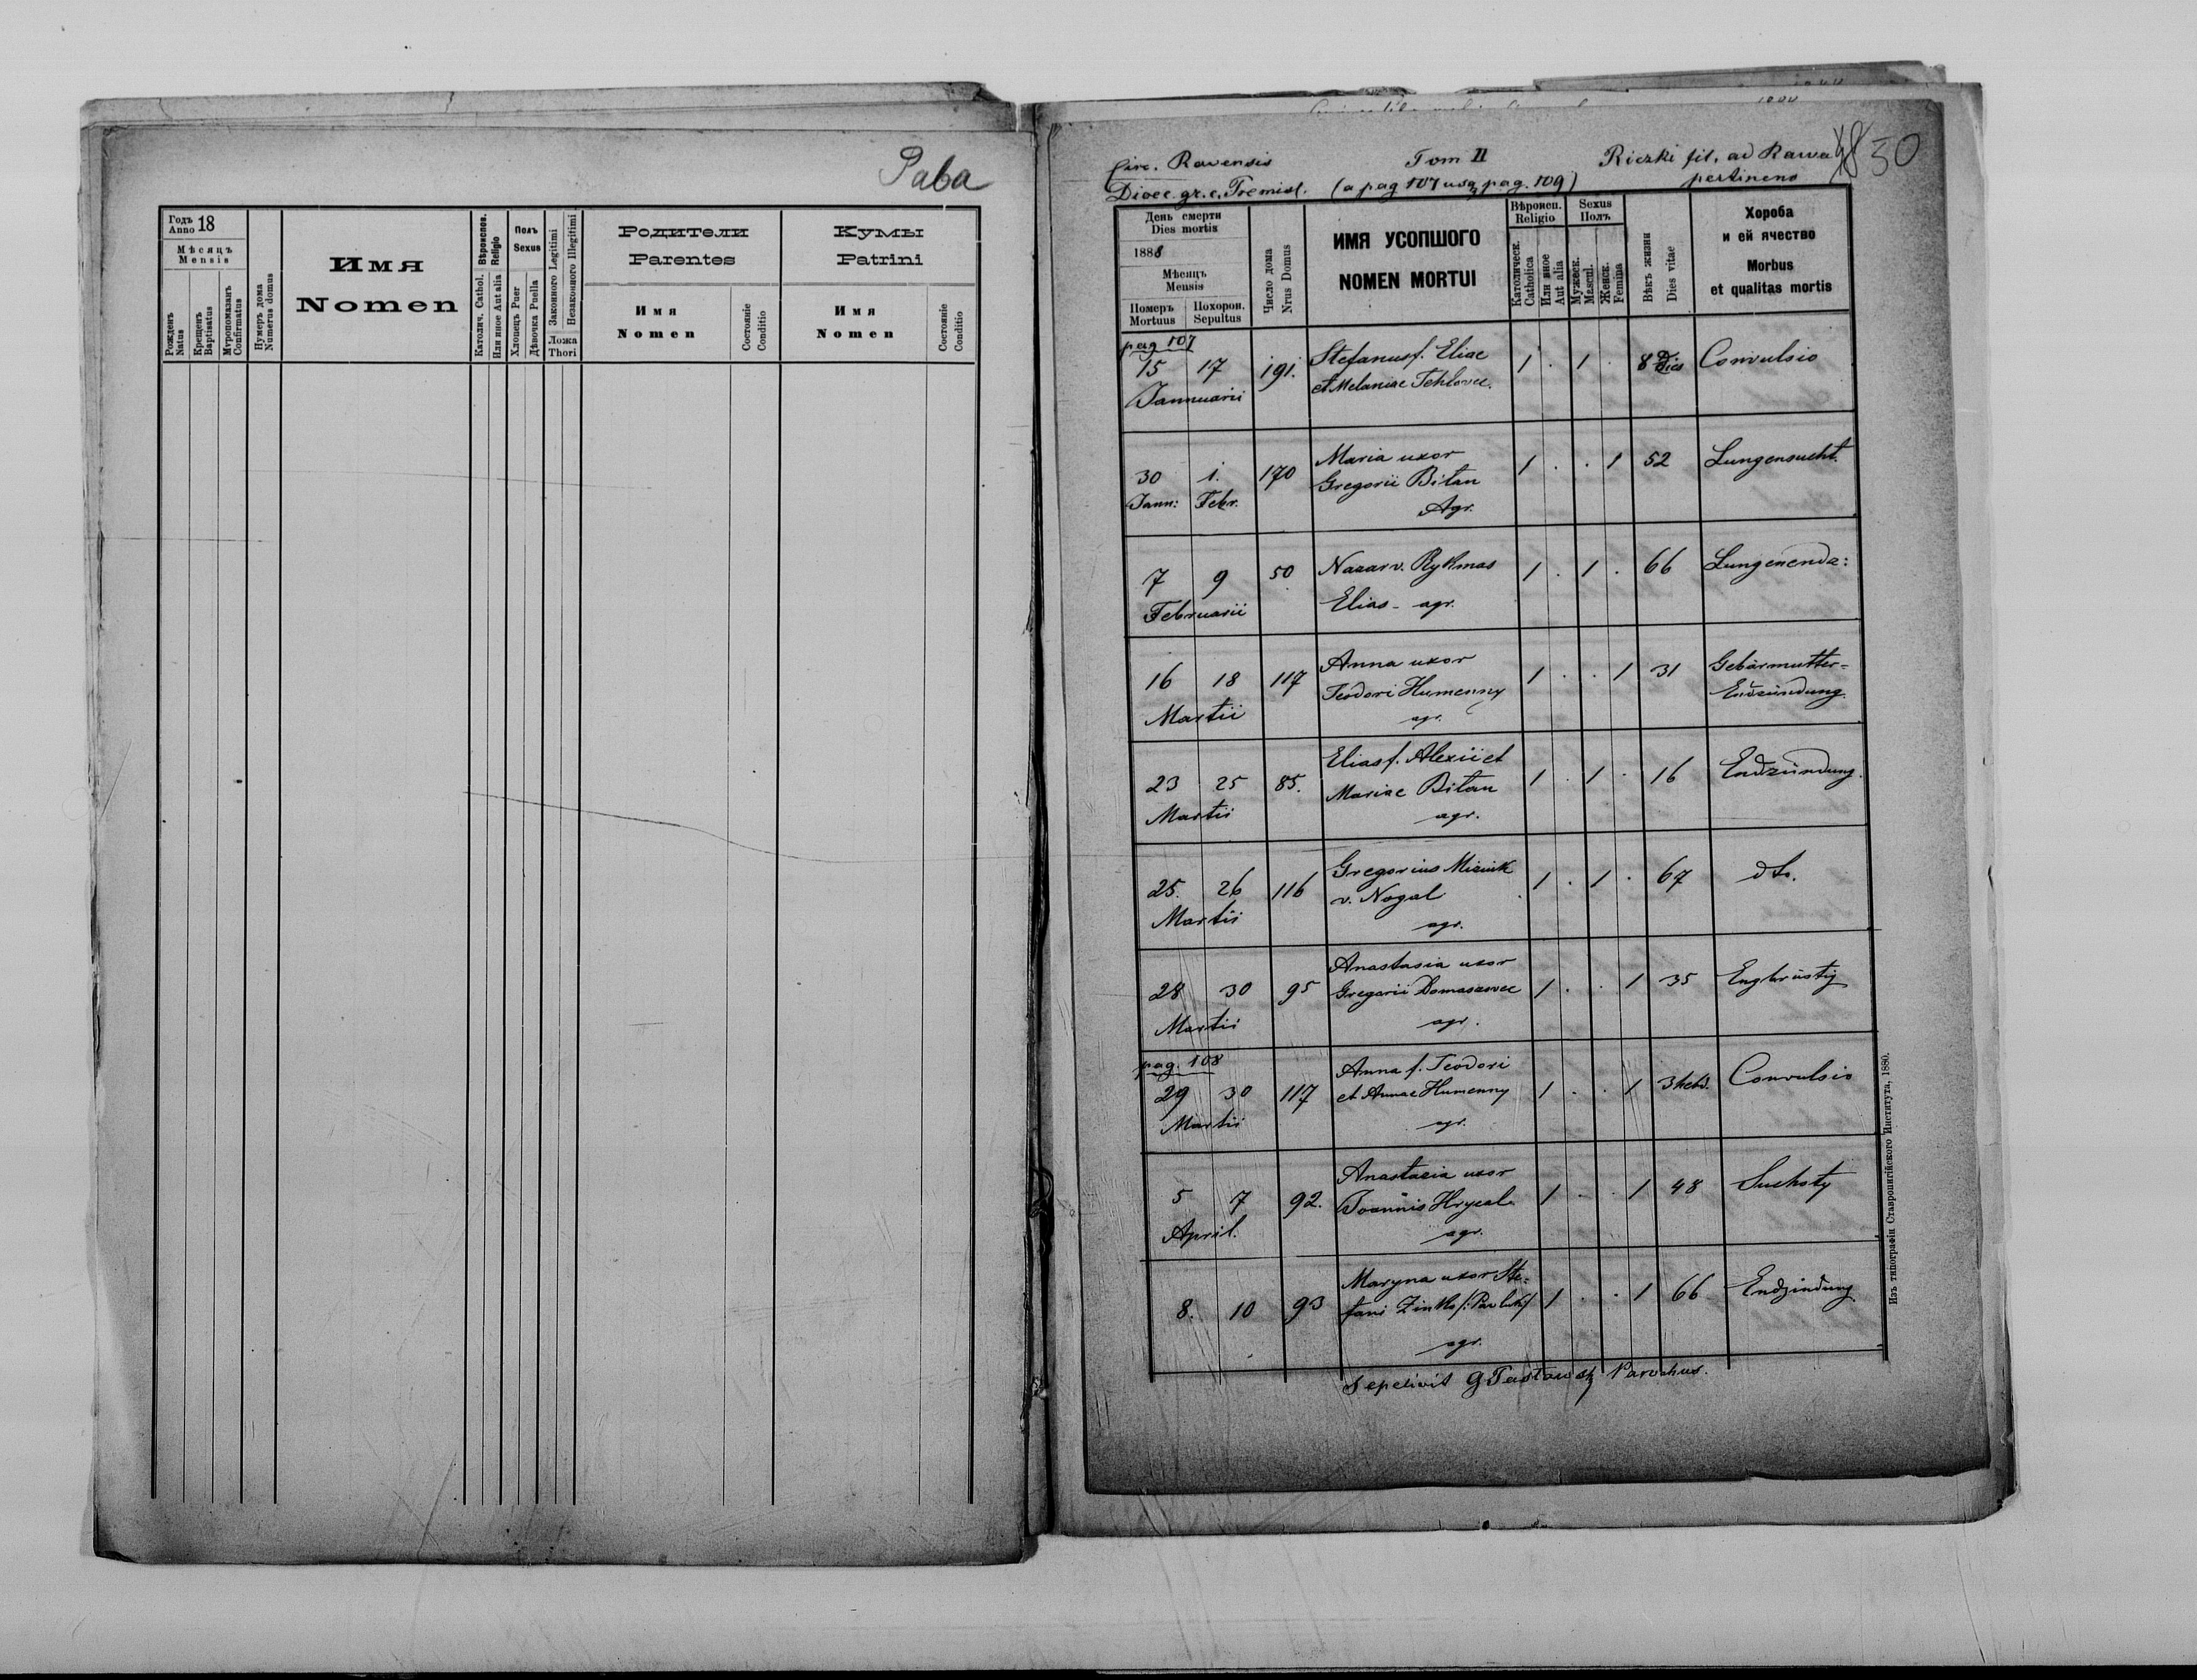 Рава
Годъ
Anno 18
Мѣсяцъ
Mensis
Рожденъ
Natus
Крещенъ
Baptisatus
Мѵропомазанъ
Confirmatus
Нумеръ дома
Numerus domus
Имя
Nomen
Вѣроиспов.
Religio
Католич. Cathol.
Или иное Aut alia
Полъ
Sexus
Хлопецъ Puer
Дѣвочка Puella
Законного Legitimi
Незаконного Illegitimi
Ложа
Thori
Родители
Parentes
Имя
Nomen
Состояніе
Conditio
Кумы
Patrini
Имя
Nomen
Состояніе
Conditio
Circ. Ravensis Tom II Riczki fil. ad Rawa 30
Dioec. gr. c. Premisl. (a pag 107 usq pag. 109) pertinens
День смерти
Dies mortis
1888
Мѣсяцъ
Mensis
Померъ
Mortuus
Похорон.
Sepultus
Число дома
Nrus Domus
ИМЯ УСОПШОГО
NOMEN MORTUI
Вѣроисп.
Religio
Католическ.
Catholica
Или иное
Aut alia
Sexus
Полъ
Мужеск.
Mascul.
Женск.
Femina
Вѣкъ жизни
Dies vitae
Хороба
и ей ячество
Morbus
et qualitas mortis
pag 107
15 17 191. Stefanus f. Eliae 1 . 1 . 8 Dies Convulsio
Jannuarii et Melaniae
30 1. 170 Maria uxor 1 . . 1 52 Lungensucht.
Jann: Febr. Gregorii Bitan
Agr.
7 9 50 Nazar v. Rykmas 1 . 1 . 66 Lungenendz:
Februarii Elias - agr.
16 18 117 Anna uxor 1 . . 1 31 Gebärmutter-
Martii Teodori Humenny Endzündung.
agr.
23 25 85. Elias f. Alexii et 1 . 1 . 16 Endzündung.
Martii Mariae Bitan
agr.
25. 26 116 Gregorius Misiuk 1 . 1 . 67 dto.
Martii v. Nogal
agr.
28 30 95 Anastasia uxor 1 . . 1 35 Engbrüstig
Martii Gregorii Domaszovec
agr.
pag. 108
29 30 117 Anna f. Teodori 1 . . 1 3 hebd. Convulsio
Martii et Annae Humenny
agr.
5 7 92. Anastasia uxor 1 . . 1 48 Suchoty
April. Joannis Hrycal
agr.
8. 10 93 Maryna uxor Ste-
fani Zinko /: Pawluk / 1 . . 1 66 Endzindung
agr.
Sepelivit Parochus.
Изъ типографіи Ставропигійского Института, 1880.